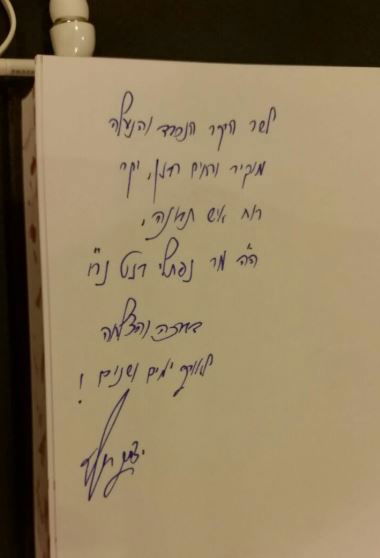 לשר היקר הנכבד והנעלה
מוקיר רבנן, יקר
רוח איש תבונה,
ה"ה מר נפתלי בנט נ"י
בברכה והצלחה
לאורך ימים ושנים !